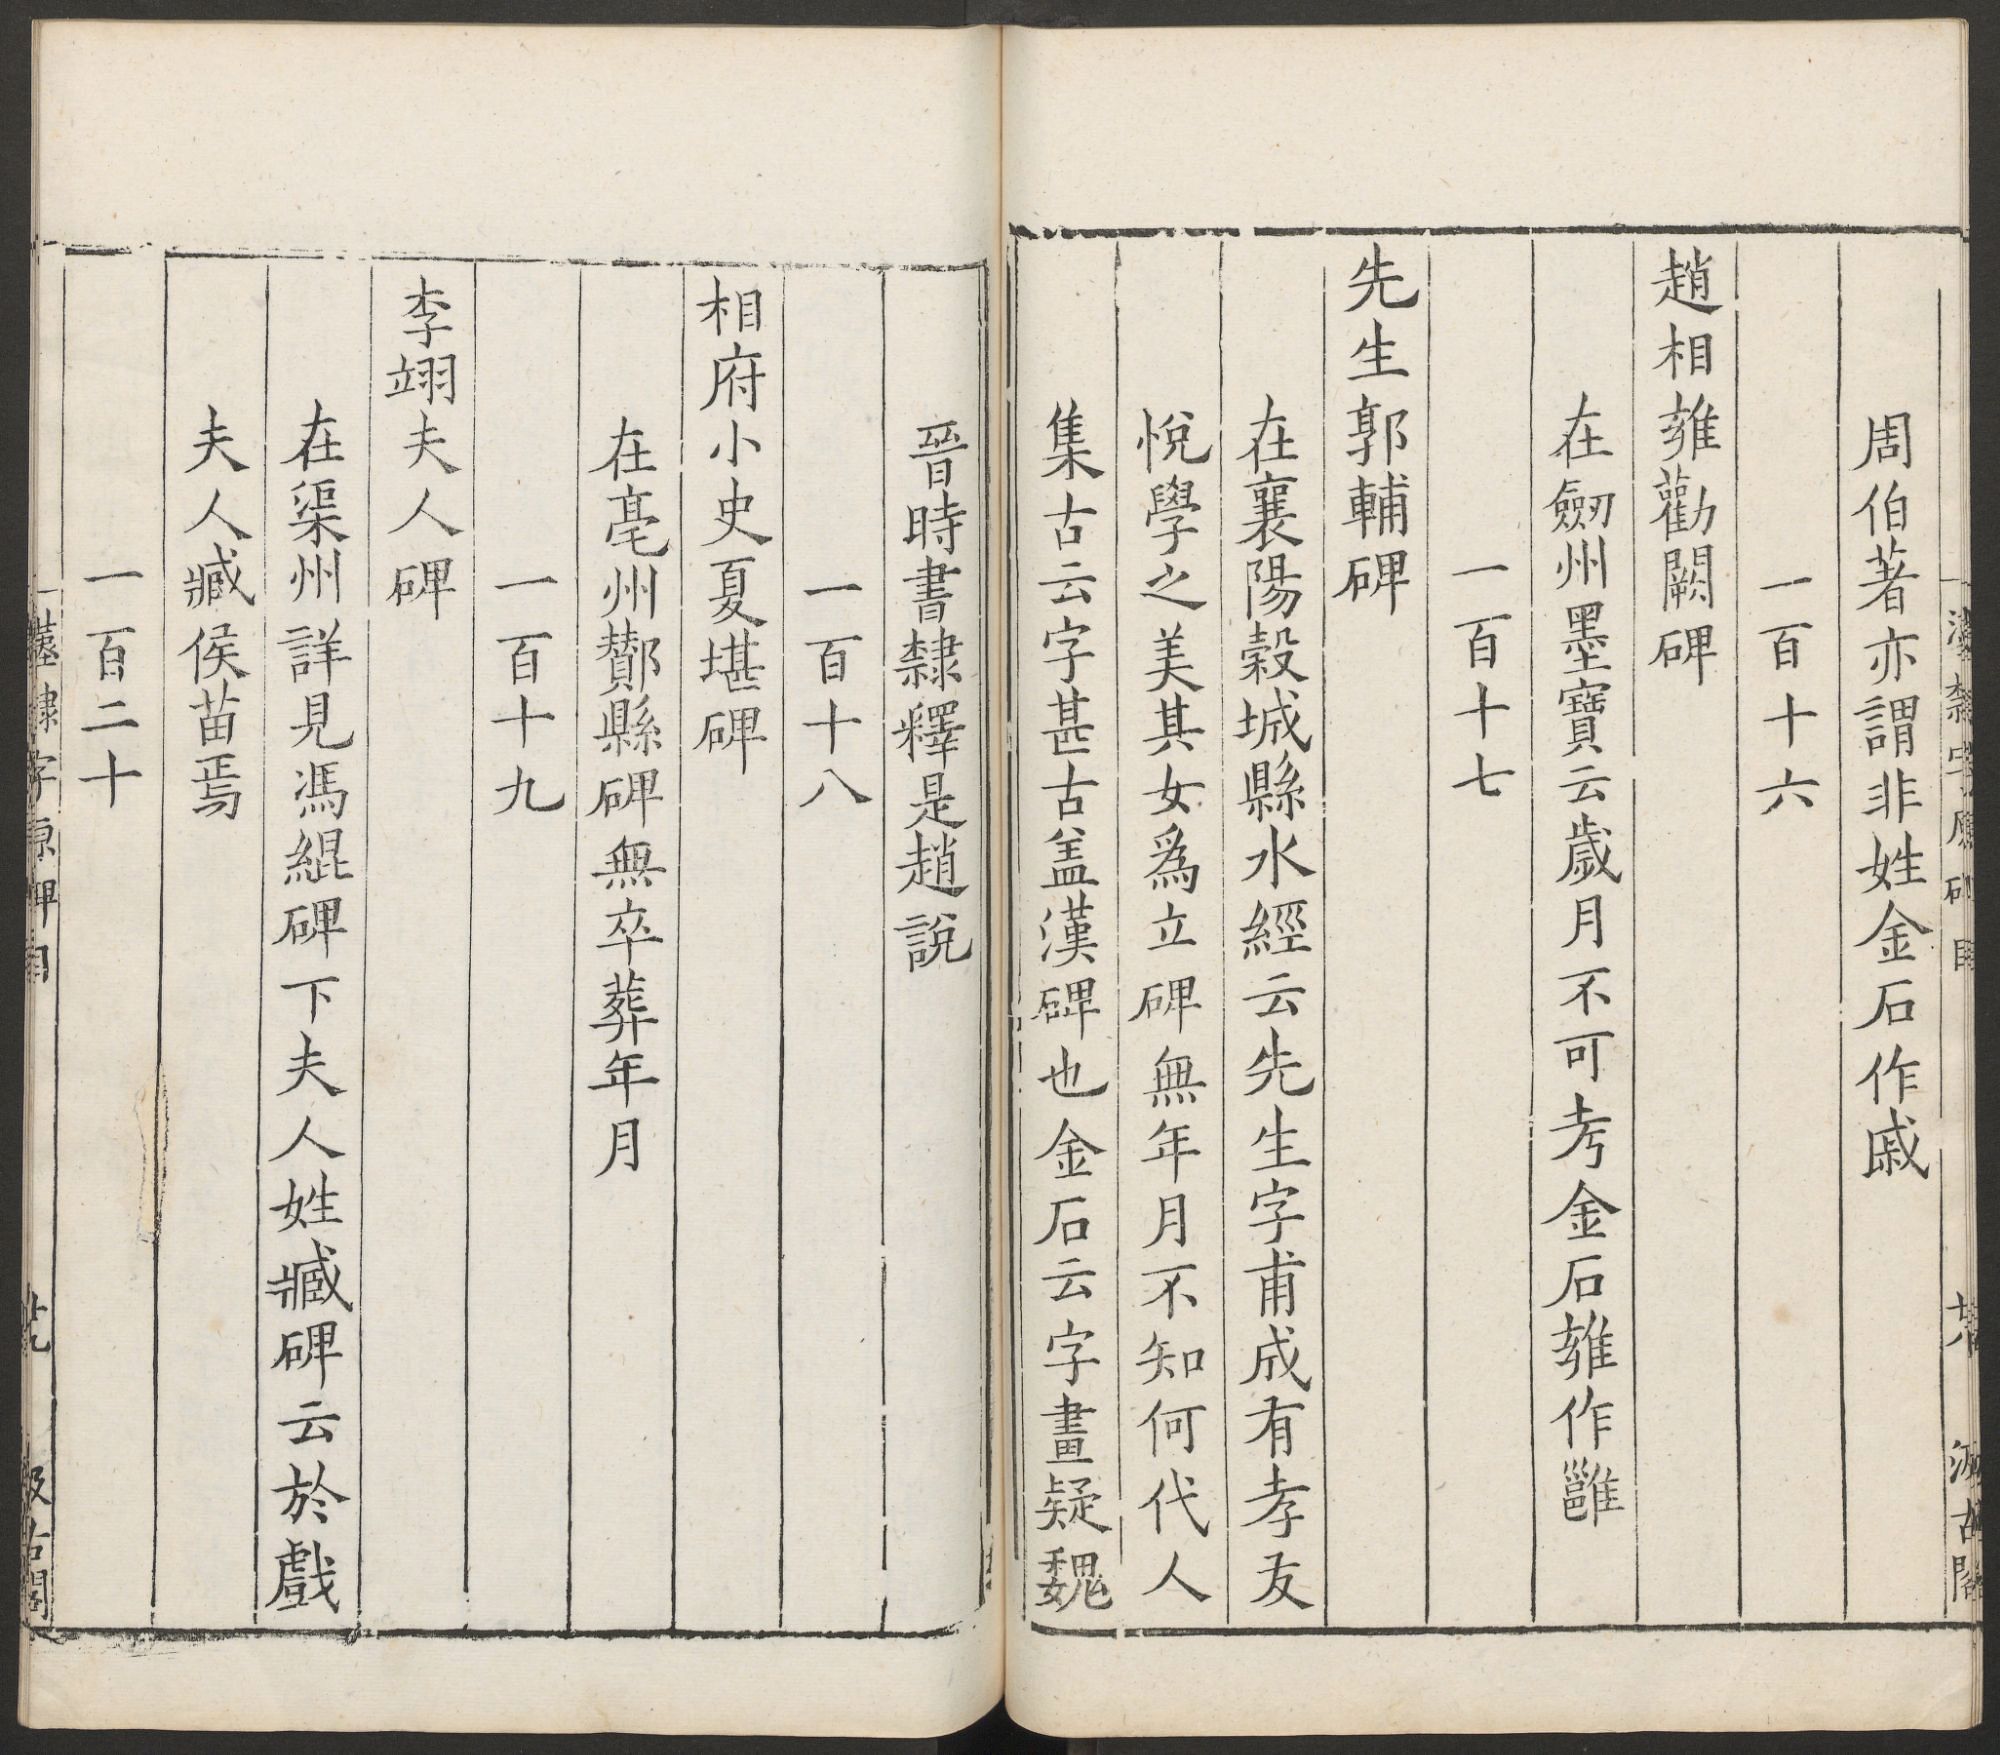 周伯著亦謂非姓金石作戚
一百十六
趙相雍勸闕碑
在劒州墨寶云歲月不可考金石雍作雝
一百十七
先生郭輔碑
在襄陽穀城縣水經云先生字甫成有孝友
悅學之美其女爲立碑無年月不知何代人
集古云字甚古盖漢碑也金石云字畫疑魏
晉時書隸釋是趙說
一百十八
相府小史夏堪碑
在亳州酇縣碑無卒葬年月
一百十九
李翊夫人碑
在渠州詳見馮緄碑下夫人姓臧碑云於戲
夫人臧侯苗焉
一百二十
漢隸字原碑目
廿九
汲古閣